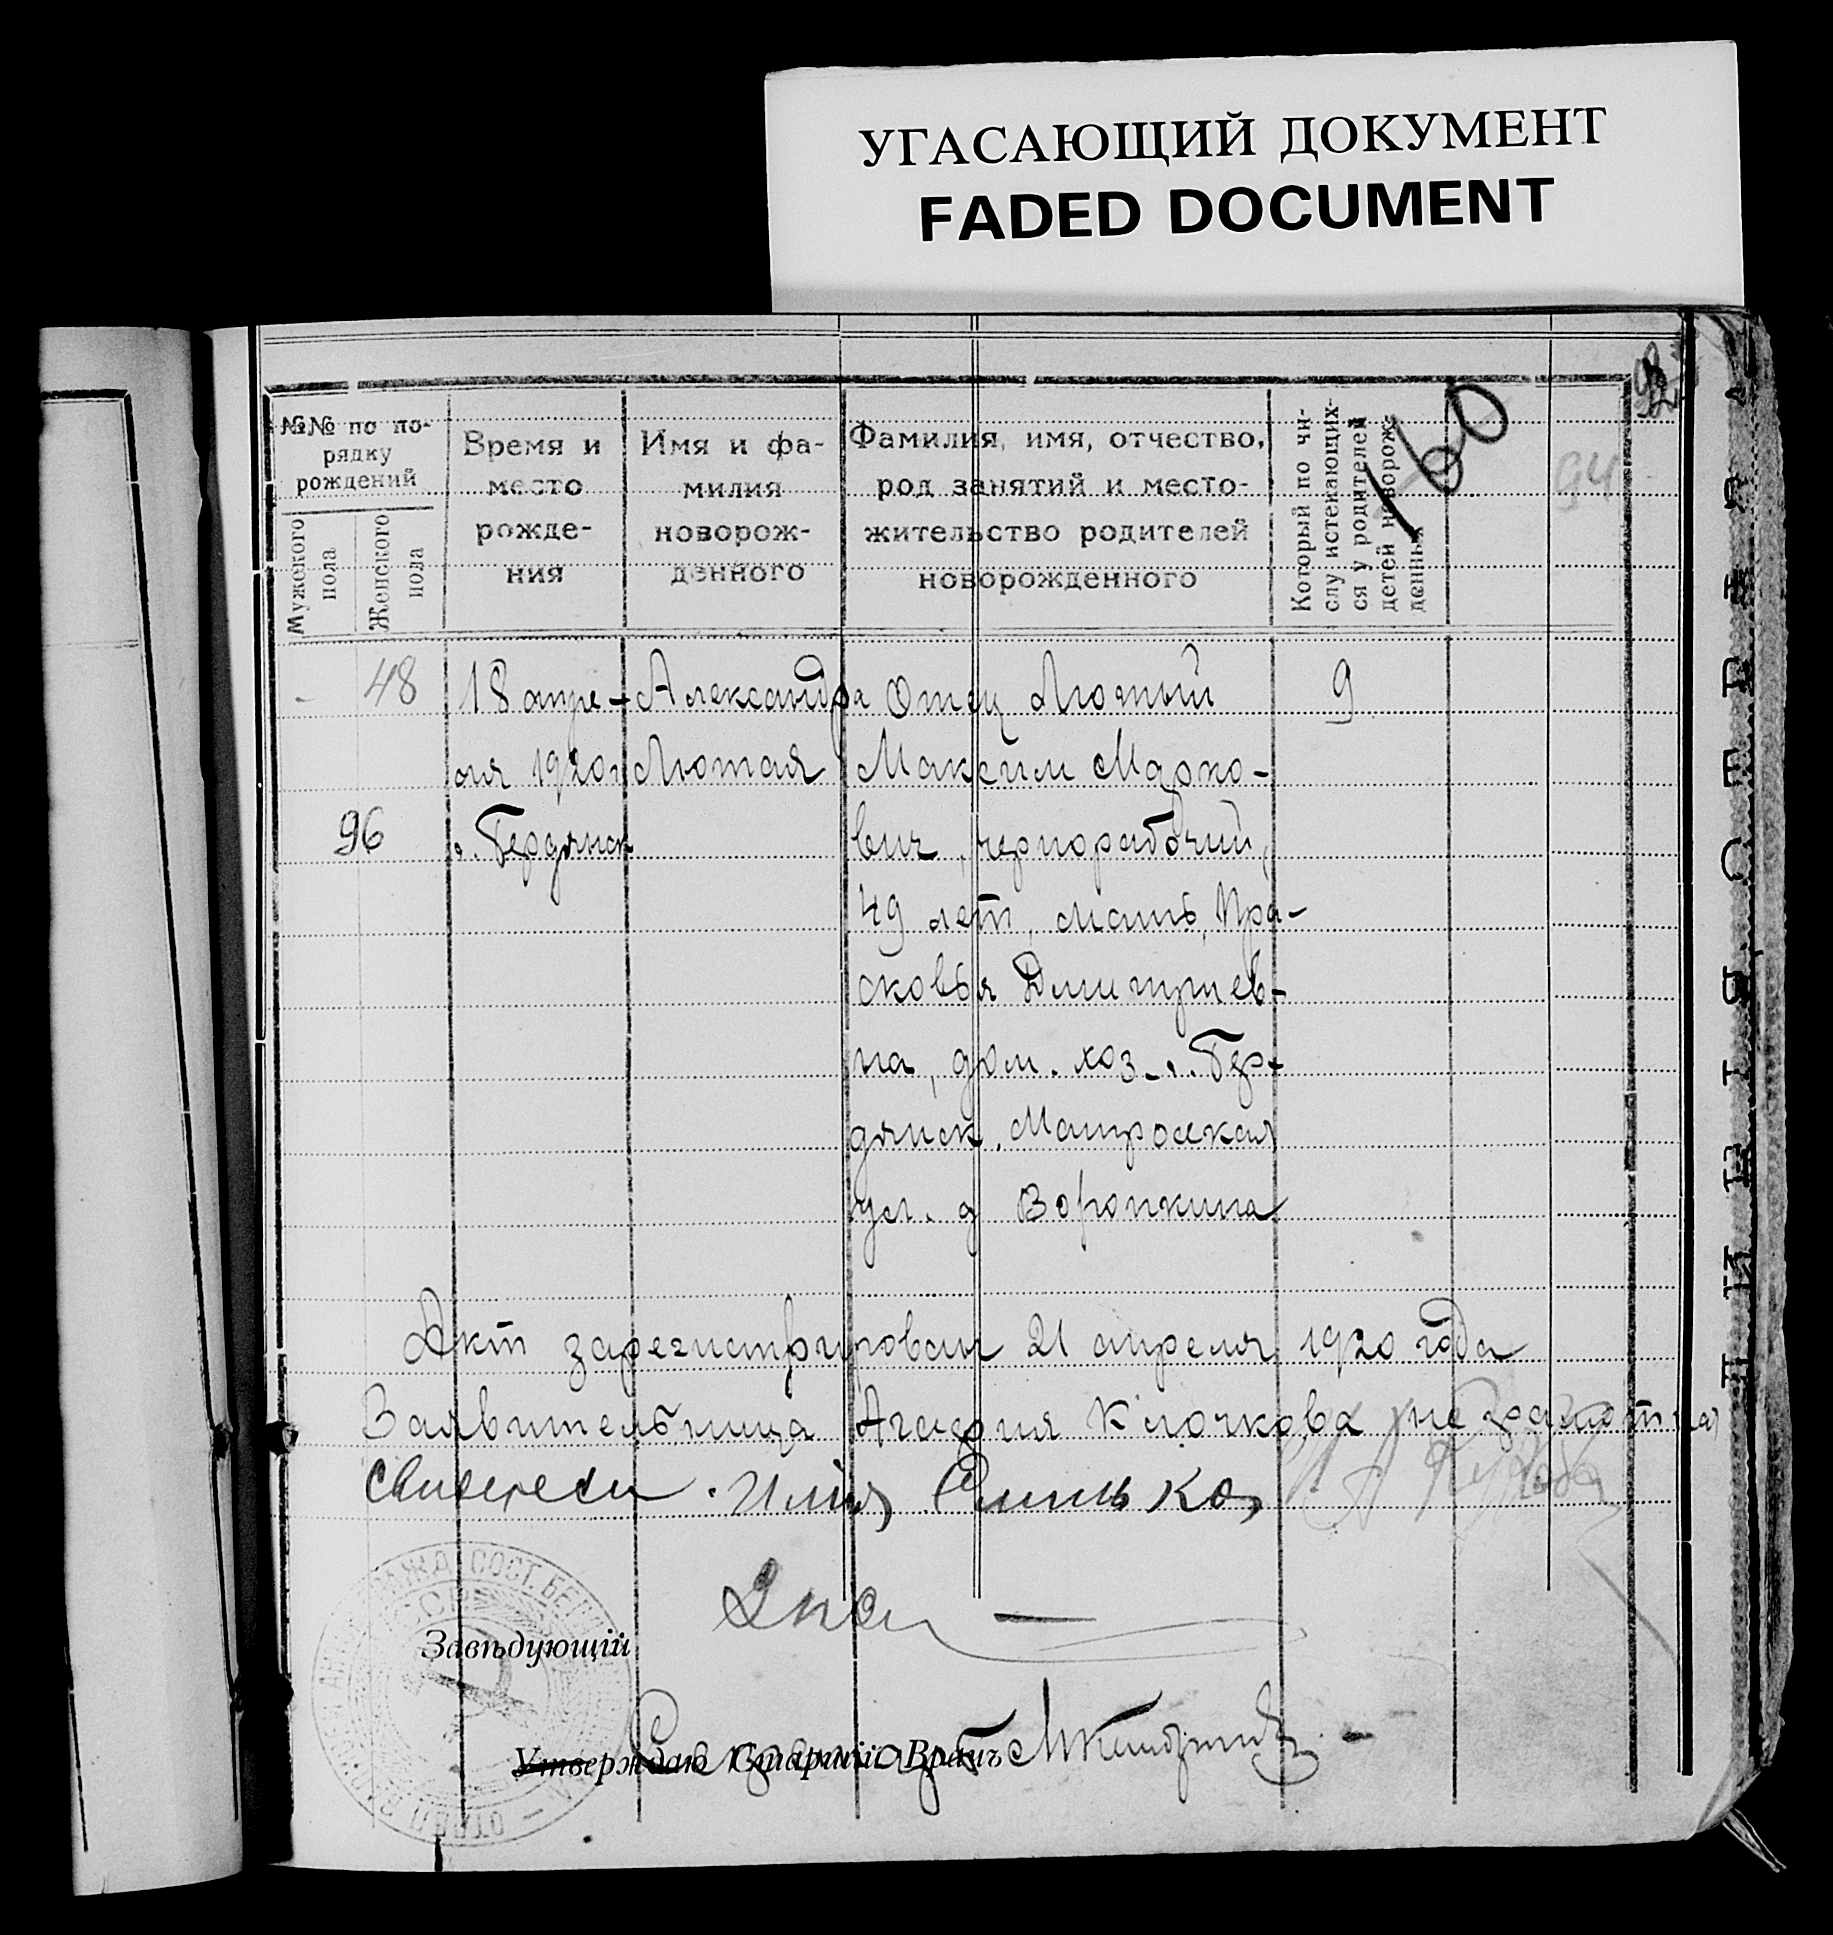 УГАСАЮЩИЙ ДОКУМЕНТ
FADED DOCUMENT
160
94
№№ по по-
рядку
рождений
Мужского
пола
Женского
пола
Время и
место
рожде-
ния
Имя и фа-
милия
новорож-
денного
Фамилия, имя, отчество,
род занятий и место-
жительство родителей
новорожденного
Который по чи-
слу истекающих-
ся у родителей
детей новорож-
денный
- 48
96
18 апре-
ля 1920 г
г. Бердянск
Александра
Лютая
Отец Лютый
Максим Марко-
вич, чернорабочий,
49 лет, мать, Пра-
сковья Дмитриев-
на, дом. хоз. г. Бер-
дянск, Матросская
ул. д Воронкина
9
Акт зарегистрирован 21 апреля 1920 года
Заявительница Агафия Клочкова неграмотная
Свидетели Илья
Завѣдующій
Утверждаю Старшій Врачъ